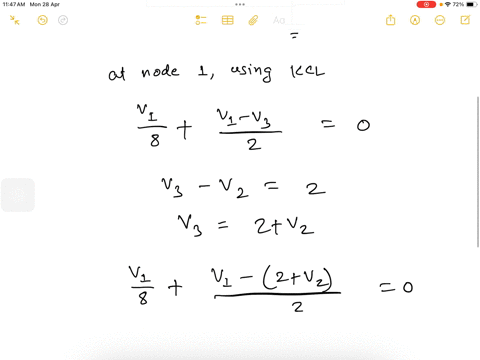 11:47 AM Mon 28 Apr
72%
Aa
=
at node 1, using KCL
V₁/8 + (V₁-V₃)/2 = 0
V₃ - V₂ = 2
V₃ = 2+V₂
V₁/8 + (V₁-(2+V₂))/2 = 0